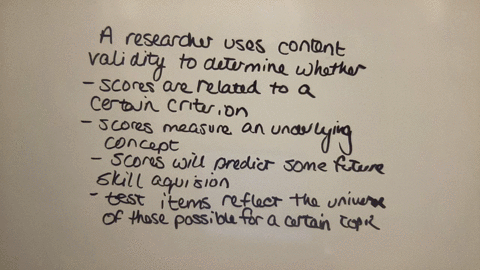 A researcher uses content
validity to determine whether
- scores are related to a
certain criterion
- scores measure an underlying
concept
- scores will predict some future
skill aquision
- test items reflect the universe
of those possible for a certain topic